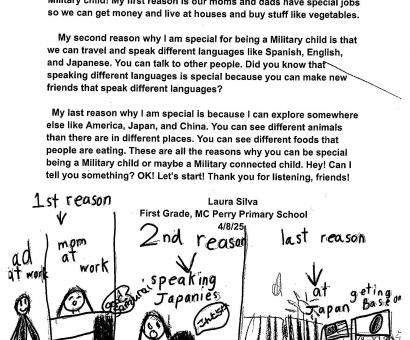 Military child! My first reason is our moms and dads have special jobs
so we can get money and live at houses and buy stuff like vegetables.
My second reason why I am special for being a Military child is that
we can travel and speak different languages like Spanish, English,
and Japanese. You can talk to other people. Did you know that
speaking different languages is special because you can make new
friends that speak different languages?
My last reason why I am special is because I can explore somewhere
else like America, Japan, and China. You can see different animals
than there are in different places. You can see different foods that
people are eating. These are all the reasons why you can be special
being a Military child or maybe a Military connected child. Hey! Can I
tell you something? OK! Let's start! Thank you for listening, friends!
Laura Silva
First Grade, MC Perry Primary School
4/8/25
1st reason
ad
at work
mom
at
work
2nd reason
speaking
Japanies
last reason
at
Japan
geting
Base on